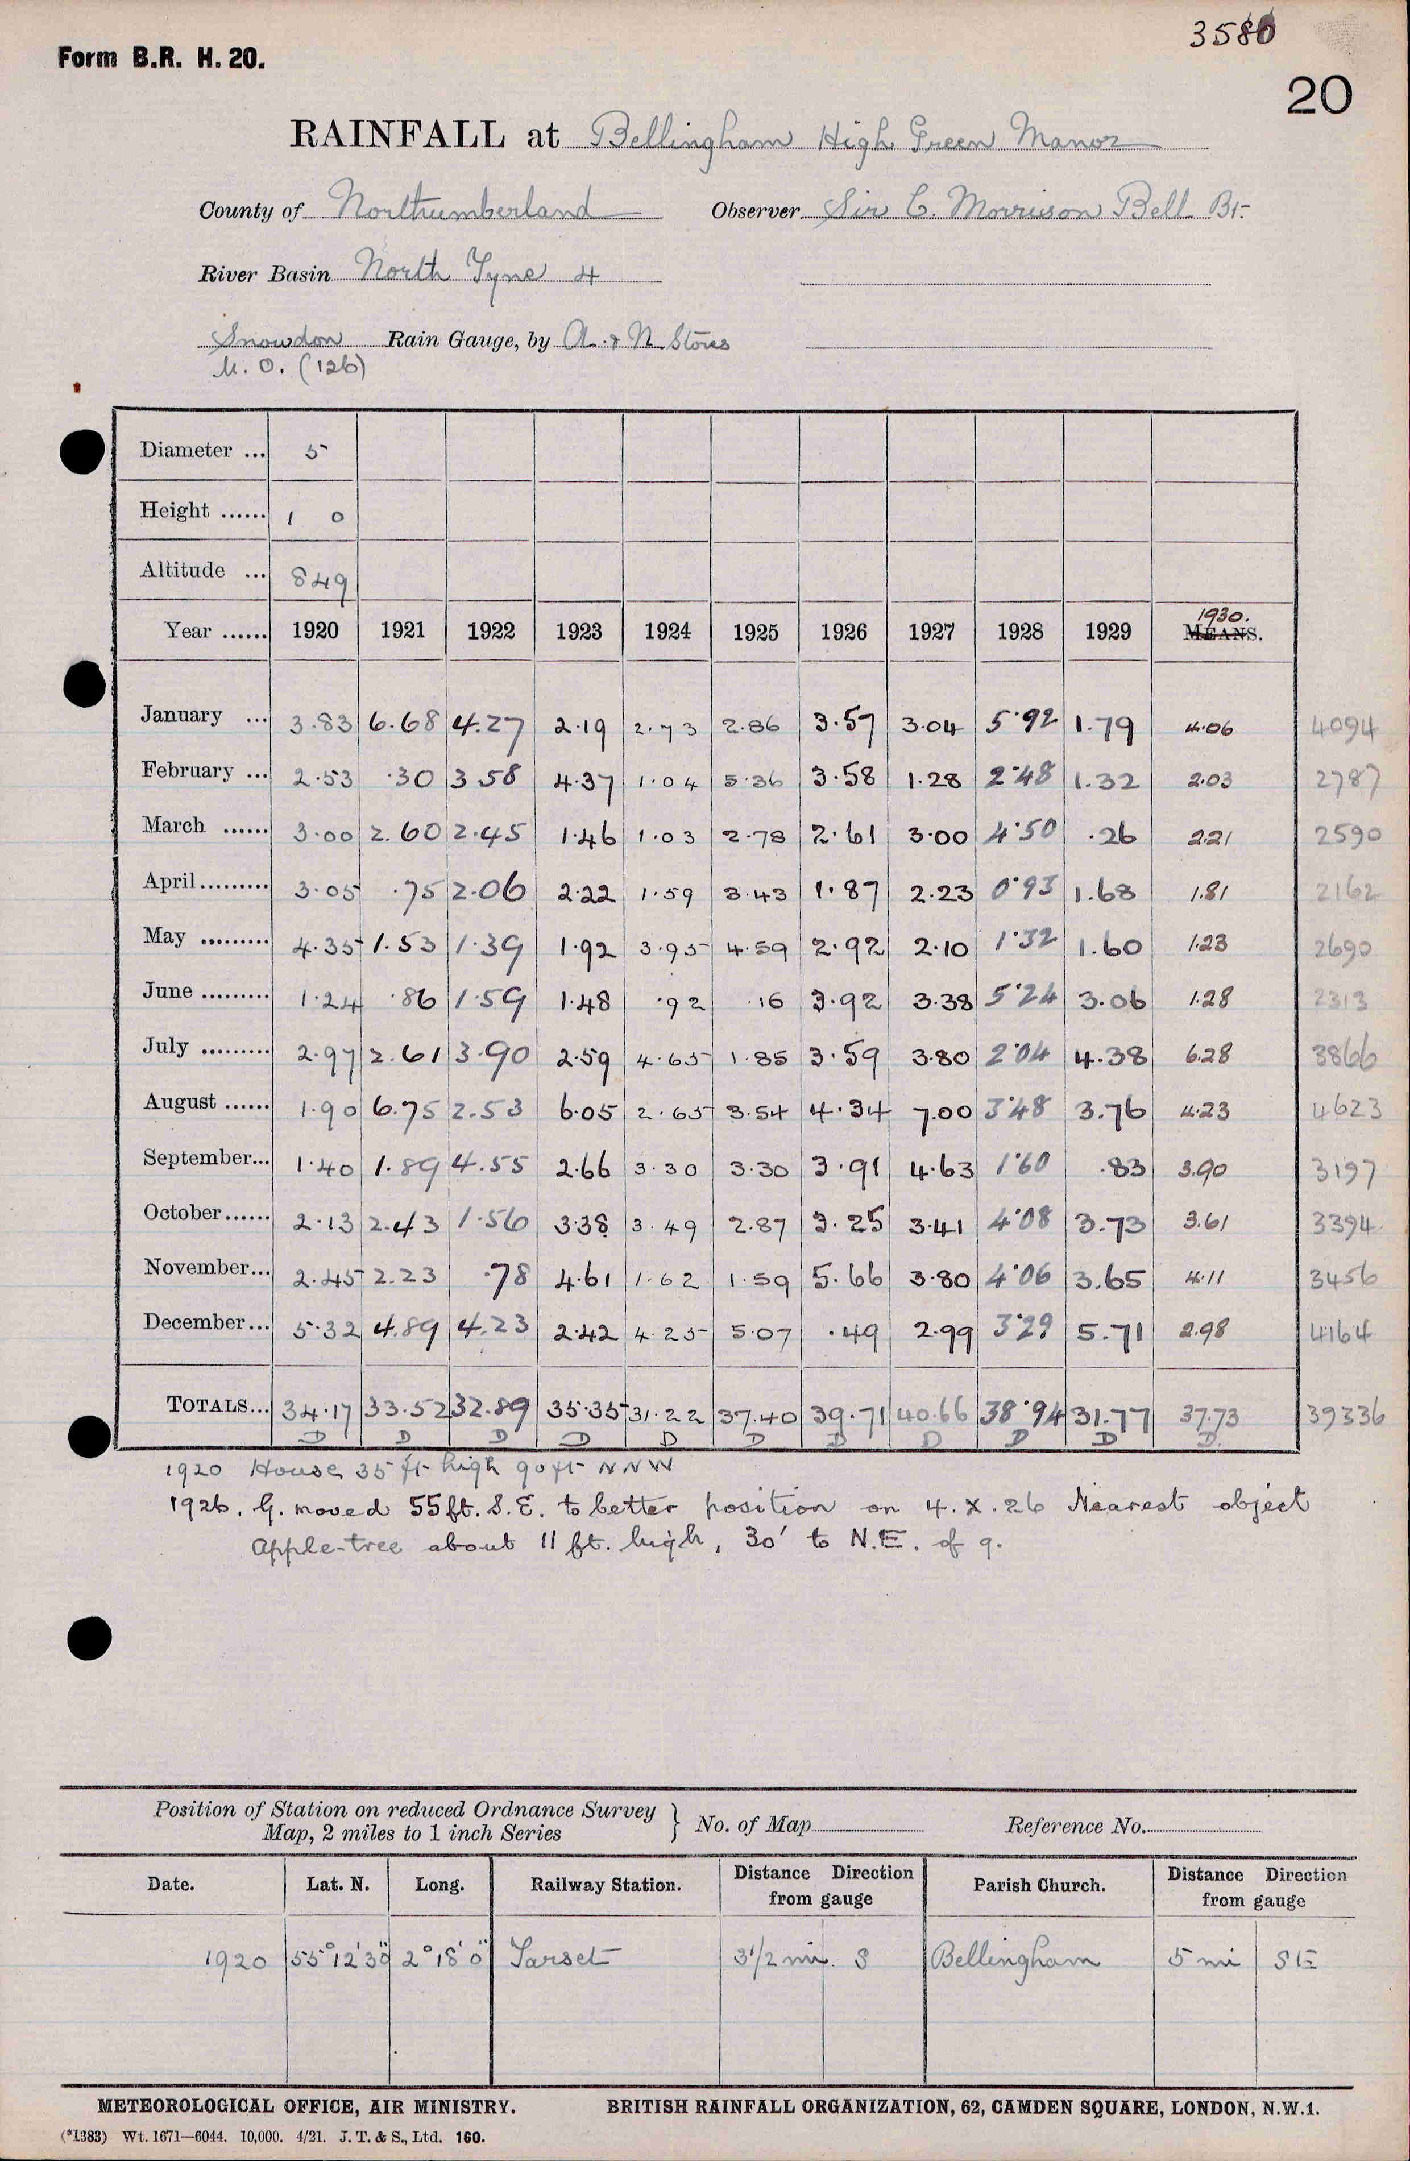 3580
Form B.R. H. 20.
20
RAINFALL at Bellingham High Green Manor
County of Northumberland Observer Sir C. Morrison Bell Bt.
River Basin North Tyne 4
Snowdon Rain Gauge, by A. & N. Stores
M. O. (126)
Diameter ... 5
Height ...... 1 0
Altitude ... 849
Year ...... 1920 1921 1922 1923 1924 1925 1926 1927 1928 1929 1930. MEANS.
January ... 3.83 6.68 4.27 2.19 2.73 2.86 3.57 3.04 5.92 1.79 4.06 4094
February ... 2.53 .30 3 58 4.37 1.04 5.36 3.58 1.28 2.48 1.32 2.03 2787
March ...... 3.00 2.60 2.45 1.46 1.03 2.78 2.61 3.00 4.50 .26 2.21 2590
April ......... 3.05 .75 2.06 2.22 1.59 3.43 1.87 2.23 0.93 1.68 1.81 2162
May ......... 4.35 1.53 1.39 1.92 3.95 4.59 2.92 2.10 1.32 1.60 1.23 2690
June ......... 1.24 .86 1.59 1.48 .92 .16 3.92 3.38 5.24 3.06 1.28 2313
July ......... 2.97 2.61 3.90 2.59 4.65 1.85 3.59 3.80 2.04 4.38 6.28 3866
August ...... 1.90 6.75 2.53 6.05 2.65 3.54 4.34 7.00 3.48 3.76 4.23 4623
September... 1.40 1.89 4.55 2.66 3.30 3.30 3.91 4.63 1.60 .83 3.90 3197
October...... 2.13 2.43 1.56 3.38 3.49 2.87 3.25 3.41 4.08 3.73 3.61 3394
November... 2.45 2.23 .78 4.61 1.62 1.59 5.66 3.80 4.06 3.65 4.11 3456
December... 5.32 4.89 4.23 2.42 4.25 5.07 .49 2.99 3.29 5.71 2.98 4164
TOTALS... 34.17 33.52 32.89 35.35 31.22 37.40 39.71 40.66 38.94 31.77 37.73 39336
D D D D D D D D D D D.
1920 House 35 ft high 90 ft NNW
1926. G. moved 55 ft. S.E. to better position on 4.X.26 Nearest object
Apple-tree about 11 ft. high, 30' to N.E. of g.
Position of Station on reduced Ordnance Survey
Map, 2 miles to 1 inch Series } No. of Map Reference No.
Date. Lat. N. Long. Railway Station. Distance Direction from gauge Parish Church. Distance Direction from gauge
1920 55°12'30" 2°18'0" Tarset 3 1/2 mi. S Bellingham 5 mi SE
METEOROLOGICAL OFFICE, AIR MINISTRY. BRITISH RAINFALL ORGANIZATION, 62, CAMDEN SQUARE, LONDON, N.W.1.
(*1383) Wt. 1671—6044. 10,000. 4/21. J. T. & S., Ltd. 160.